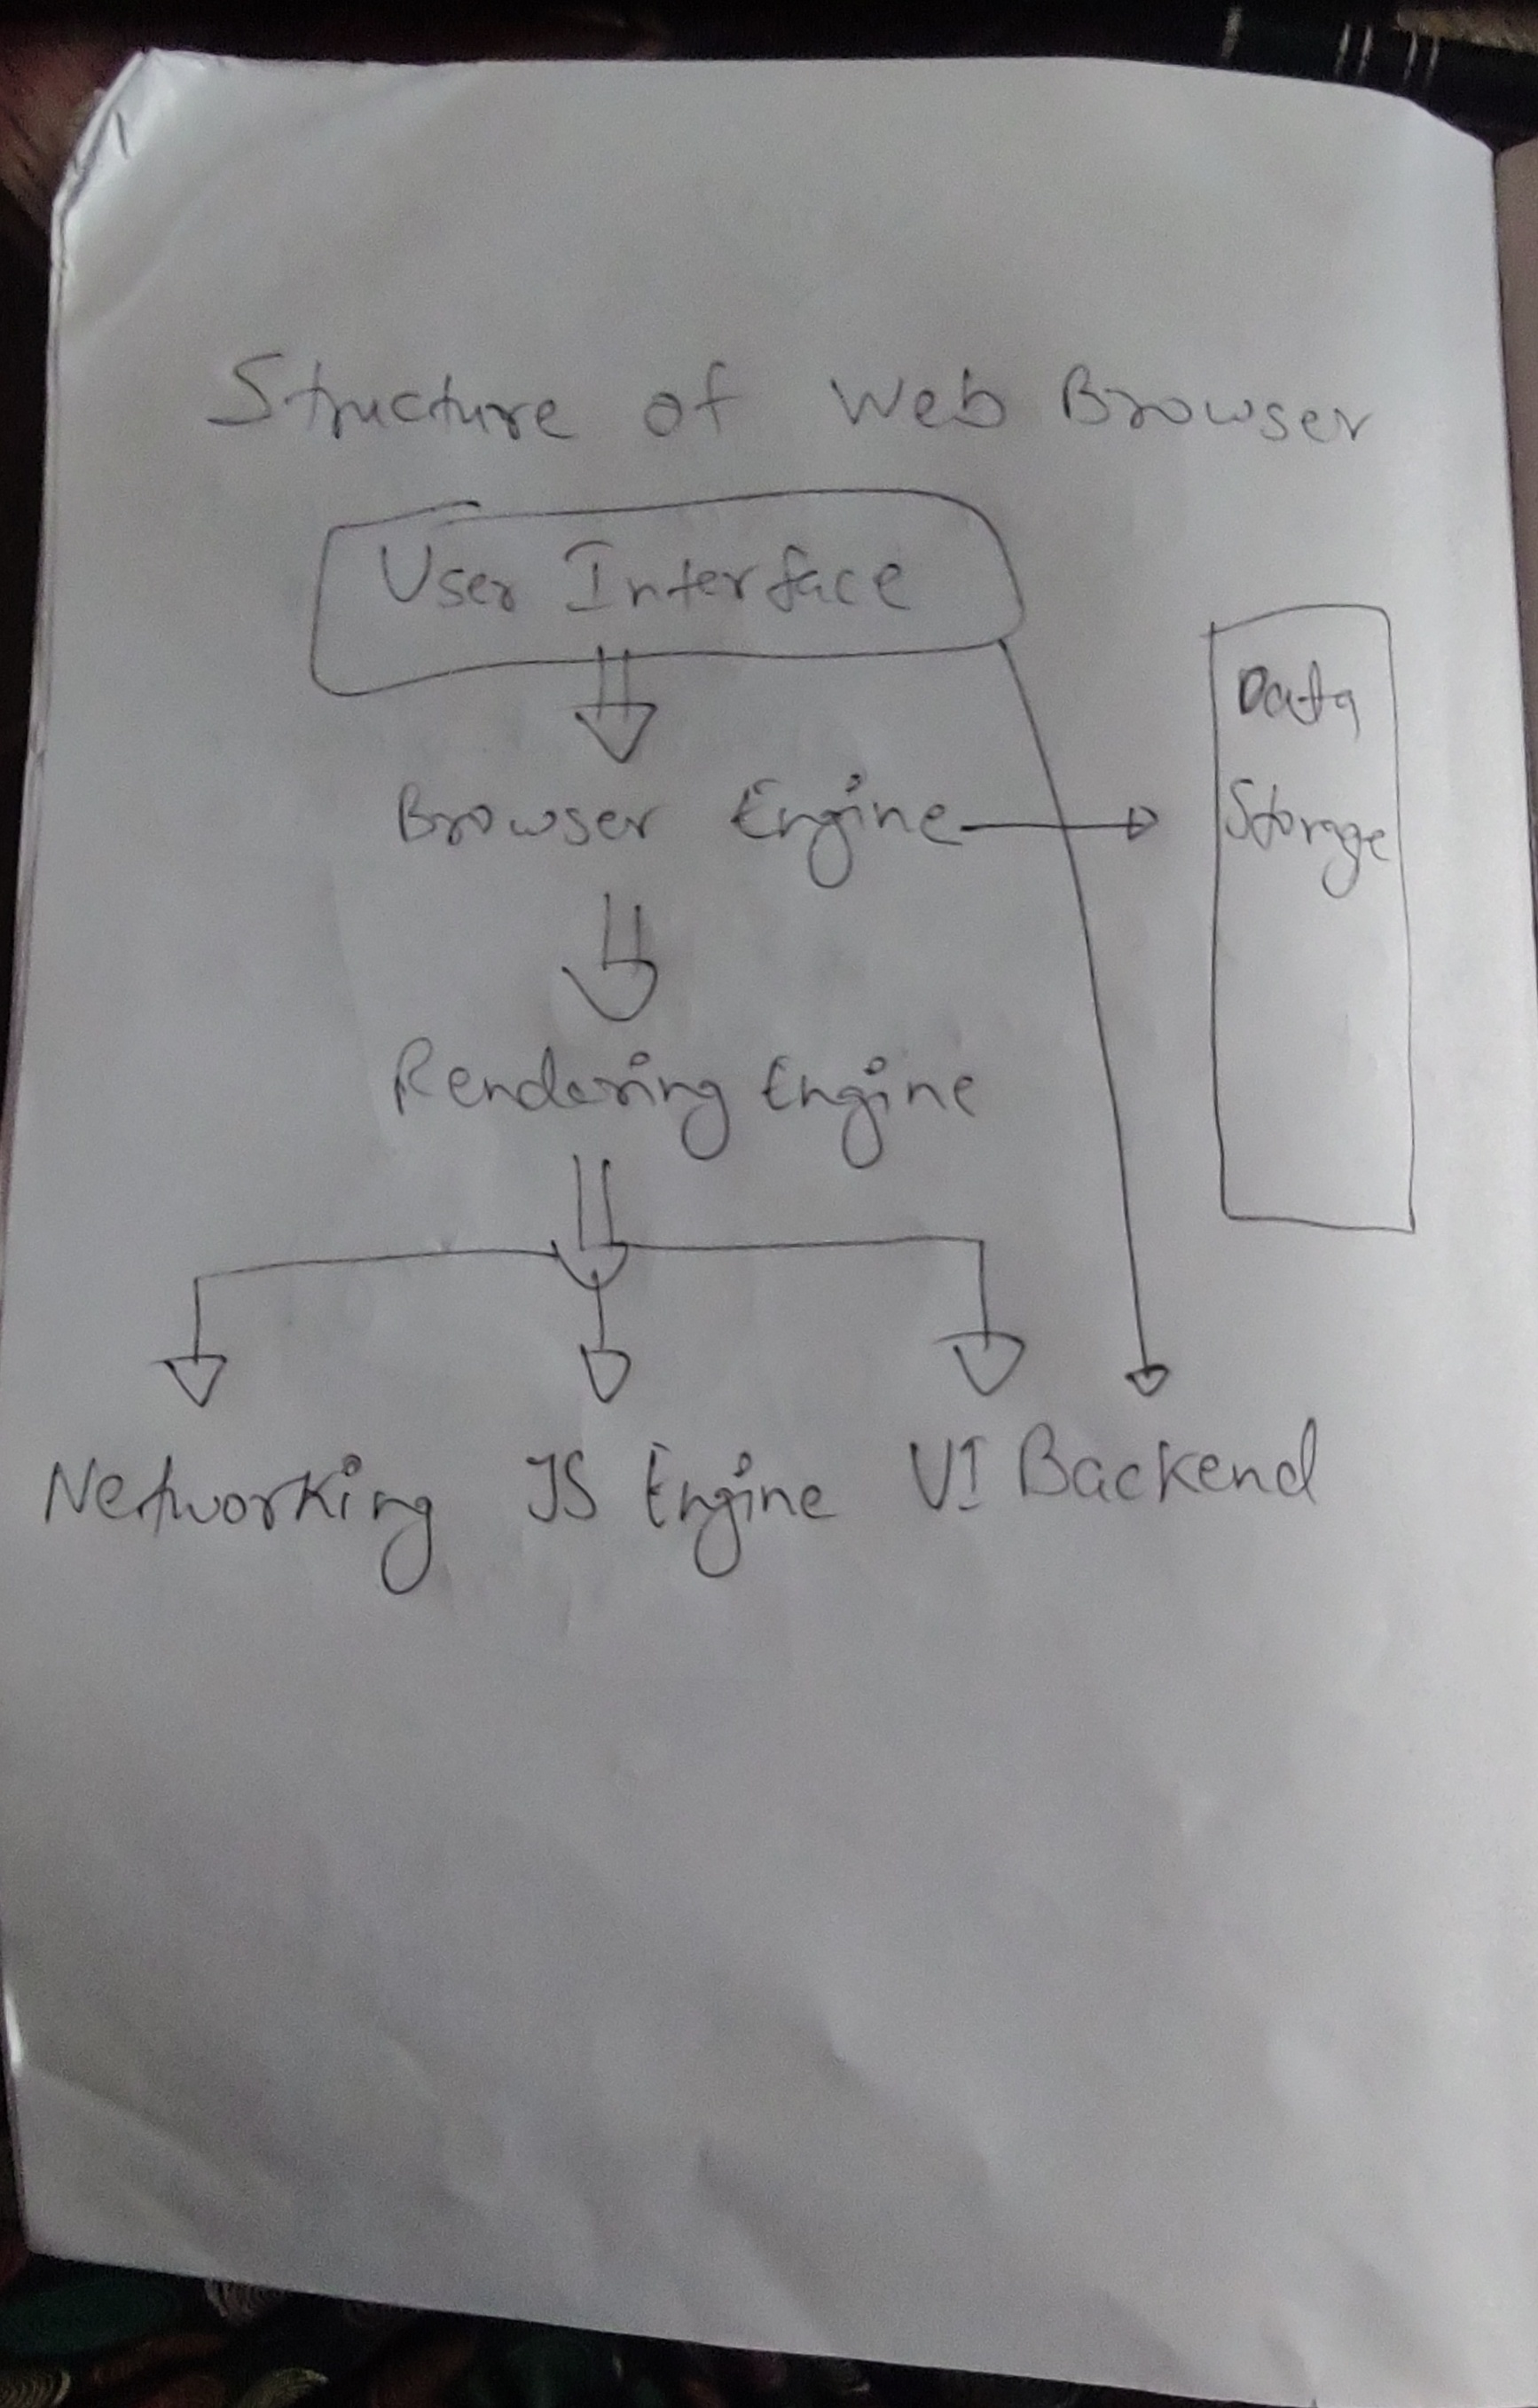 Structure of Web Browser
User Interface
Data
Storage
Browser Engine
Rendering Engine
Networking JS Engine UI Backend